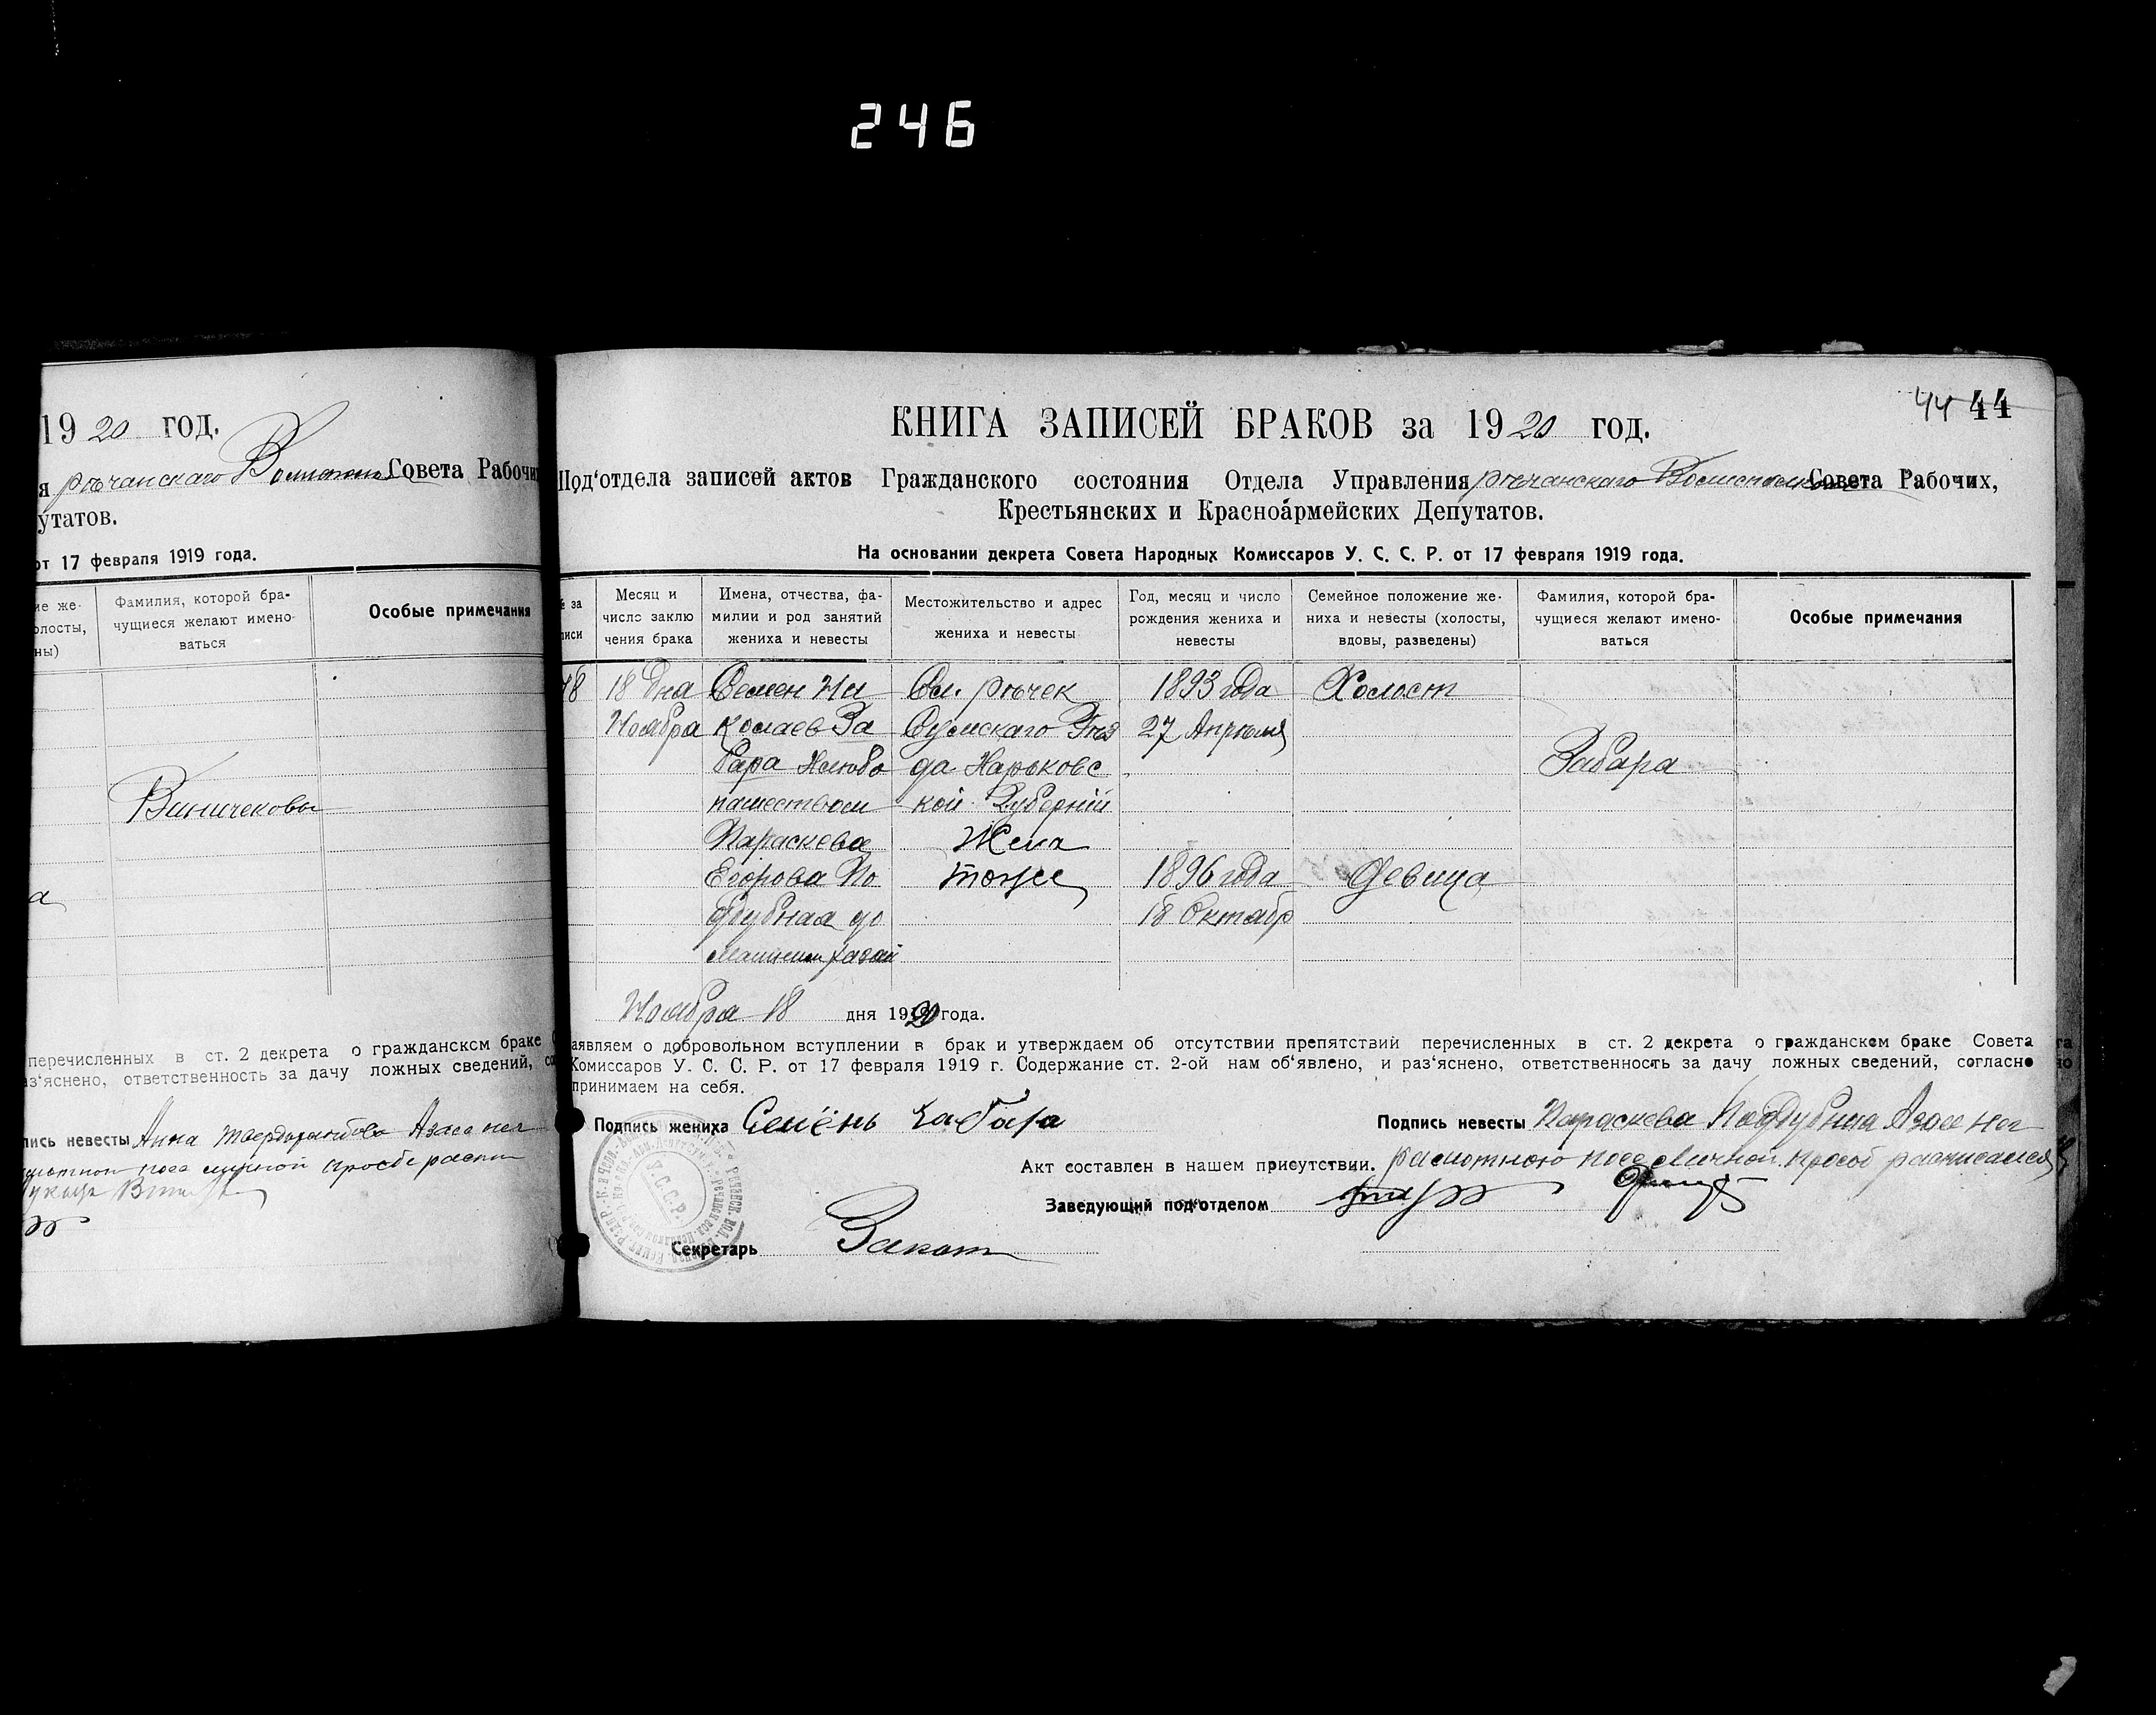 246
19 20 год.
рѣчанскаго Совета Рабочих
утатов.
от 17 февраля 1919 года.
ие же-
олосты,
ны)
Фамилия, которой бра-
чущиеся желают имено-
ваться
Особые примечания
Виниченковы
перечисленных в ст. 2 декрета о гражданском браке
аз‘яснено, ответственность за дачу ложных сведений,
пись невесты Анна
44 44
КНИГА ЗАПИСЕЙ БРАКОВ за 19 20 год.
Под‘отдела записей актов Гражданского состояния Отдела Управления рѣчанскаго Совета Рабочих,
Крестьянских и Красноармейских Депутатов.
На основании декрета Совета Народных Комиссаров У. С. С. Р. от 17 февраля 1919 года.
№ за
писи
Месяц и
число заклю
чения брака
Имена, отчества, фа-
милии и род занятий
жениха и невесты
Местожительство и адрес
жениха и невесты
Год, месяц и число
рождения жениха и
невесты
Семейное положение же-
ниха и невесты (холосты,
вдовы, разведены)
Фамилия, которой бра-
чущиеся желают имено-
ваться
Особые примечания
18 Дня Семен Ни Сл. рѣчек 1893 года Холост
Ноября колаев За Сумскаго Уѣз 27 Апрѣля
бара Хлѣбо да Харьковс Забара
пашеством кой Губерніи
Параскева Жена
Егорова По тоже 1896 года Девица
ддубная до 18 Октябр
Ноября 18 дня 1920 года.
аявляем о добровольном вступлении в брак и утверждаем об отсутствии препятствий перечисленных в ст. 2 декрета о гражданском браке Совета
Комиссаров У. С. С. Р. от 17 февраля 1919 г. Содержание ст. 2-ой нам об‘явлено, и раз‘яснено, ответственность за дачу ложных сведений, согласно
принимаем на себя.
Подпись жениха Семёнъ Забара
Подпись невесты Параскева Поддубная А за нея
Акт составлен в нашем присутствии.
Заведующий под‘отделом
Секретарь
У.С.С.Р.